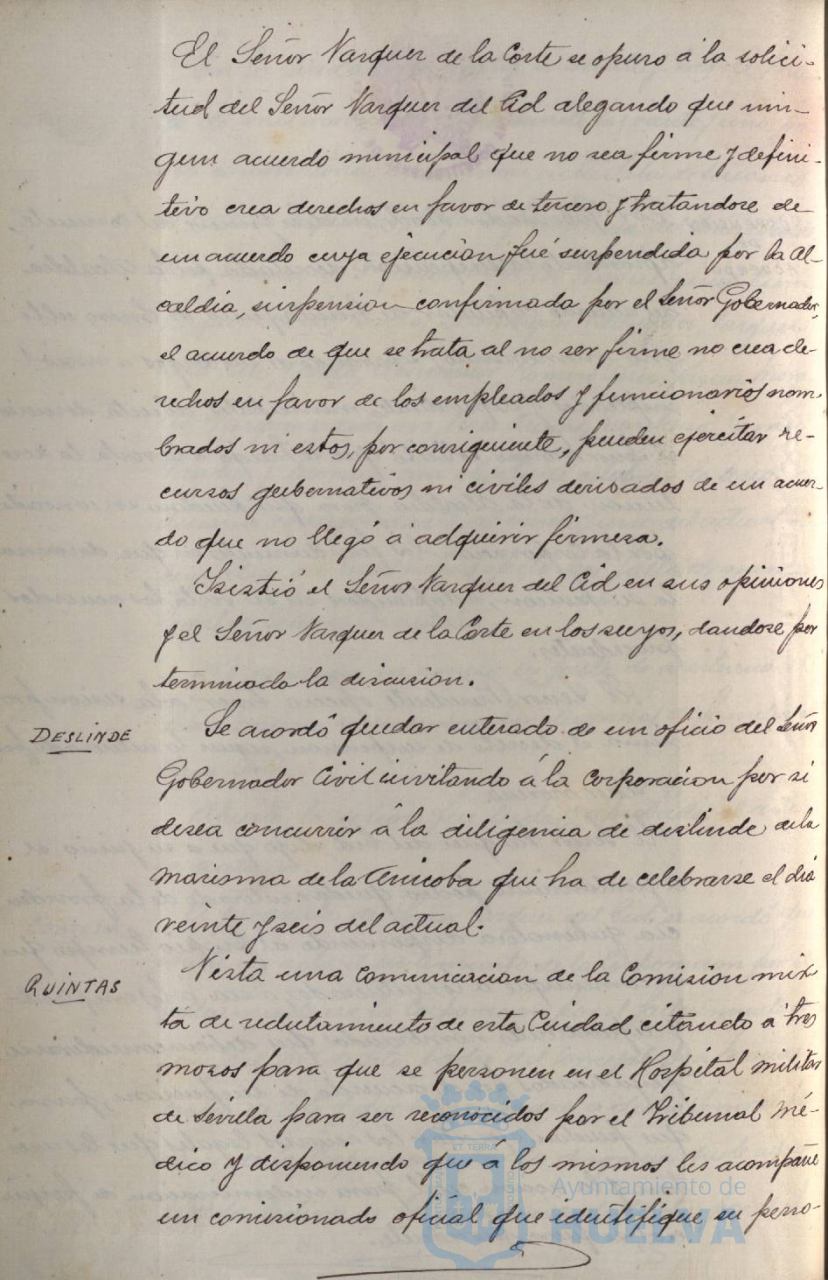 El Señor Vazquez de la Corte se opuso á la solici-
tud del Señor Vazquez del Cid alegando que nin-
gun acuerdo municipal que no sea firme y defini-
tivo crea derechos en favor de tercero y tratandose de
un acuerdo cuya ejecucion fué suspendida por la Al-
caldia, suspension confirmada por el Señor Gobernador,
el acuerdo de que se trata al no ser firme no crea de-
rechos en favor de los empleados y funcionarios nom-
brados ni estos, por consiguiente, pueden ejercitar re-
cursos gubernativos ni civiles derivados de un acuer-
do que no llegó á adquirir firmeza.
Isistió el Señor Vazquez del Cid en sus opiniones
y el Señor Vazquez de la Corte en los suyos, dandose por
terminada la discusion.
DESLINDE
Se acordó quedar enterado de un oficio del Señor
Gobernador Civil invitando á la Corporacion por si
desea concurrir á la diligencia de deslinde de la
marisma de la Anicoba que ha de celebrarse el dia
veinte y seis del actual.
QUINTAS
Vista una comunicacion de la Comision mix-
ta de reclutamiento de esta Ciudad citando á tres
mozos para que se personen en el Hospital militar
de Sevilla para ser reconocidos por el Tribunal Mé-
dico y disponiendo que á los mismos les acompañe
un comisionado oficial que identifique su perso-
ET TERRÆ
Ayuntamiento de
HUELVA